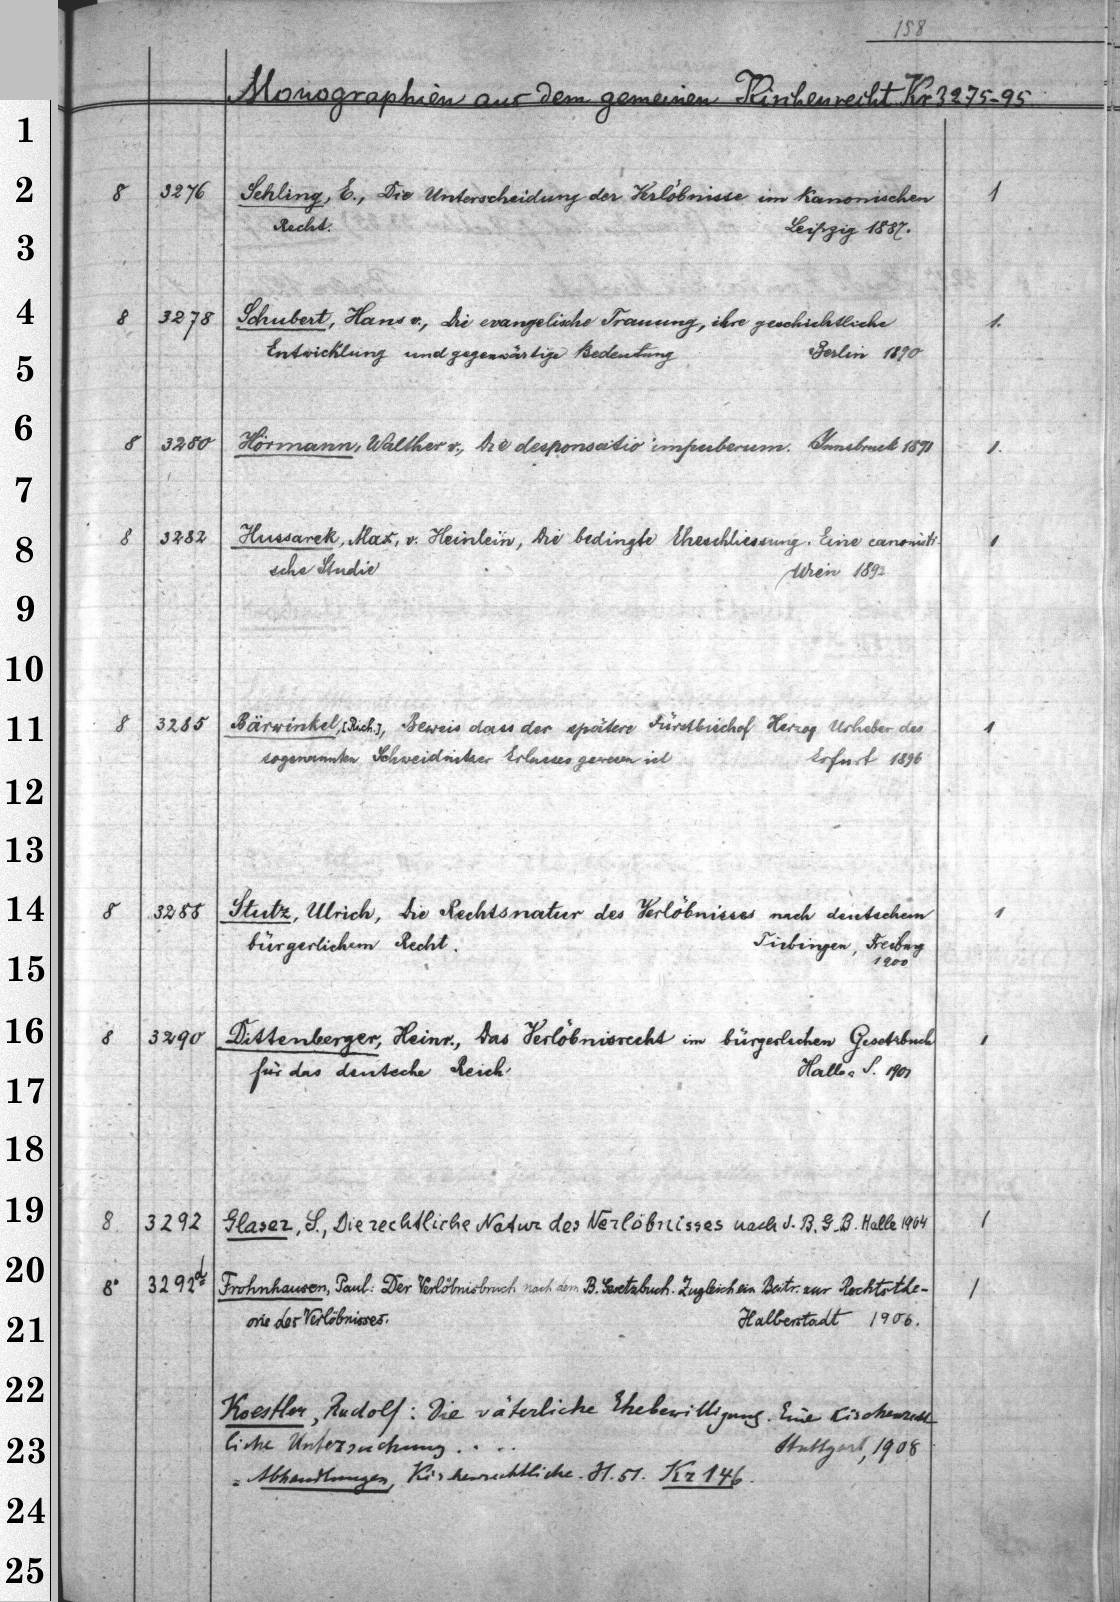 158
Monographien aus dem gemeinen Kirchenrecht Kr 3275-95
1
2 8 3276 Sehling, E., Die Unterscheidung der Verlöbnisse im kanonischen 1
Recht. Leipzig 1887.
3
4 8 3278 Schubert, Hans v., Die evangelische Trauung, ihre geschichtliche 1.
5 Entwicklung und gegenwärtige Bedeutung Berlin 1890
6 8 3280 Hörmann, Walther v., Die desponsatio impuberum. Innsbruck 1891 1.
7
8 8 3282 Hussarek, Max, v. Heinlein, Die bedingte Eheschliessung. Eine canonisti- 1
sche Studie Wien 1892
9
10
11 8 3285 Bärwinkel, [Rich.], Beweis dass der spätere Fürstbischof Herzog Urheber des 1
sogenannten Schweidnitzer Erlasses gewesen ist Erfurt 1896
12
13
14 8 3288 Stutz, Ulrich, Die Rechtsnatur des Verlöbnisses nach deutschem 1
bürgerlichem Recht. Tübingen, Freiburg
15 1900
16 8 3290 Dittenberger, Heinr., Das Verlöbnisrecht im bürgerlichen Gesetzbuch 1
für das deutsche Reich. Halle a S. 1901
17
18
19 8 3292 Glaser, S., Die rechtliche Natur des Verlöbnisses nach d. B. G. B. Halle 1904 1
20 8° 3292d Frohnhausen, Paul: Der Verlöbnisbruch nach dem B. Gesetzbuch. Zugleich ein Beitr. zur Rechtsthe- 1
21 orie des Verlöbnisses. Halberstadt 1906.
22 Koestler, Rudolf: Die väterliche Ehebewilligung. Eine kirchenrecht-
23 liche Untersuchung.... Stuttgart, 1908
= Abhandlungen, Kirchenrechtliche. H. 51. Kr 146.
24
25